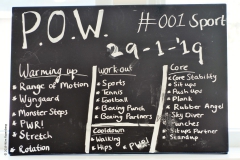 P.O.W. #001 Sport
29-1-'19
Warming up
* Range of Motion
* Wyngaard
* Monster Steps
* PWR!
* Stretch
* Rotation
workout
* Sports
* Tennis
* Football
* Boxing Punch
* Boxing Partners
Cooldown
* Walking
* Hips * PWR!
Core
* Core Stability
* Situps
* Push ups
* Plank
* Rubber Angel
* Sky Diver
* Punches
* Situps Partner
* Standup